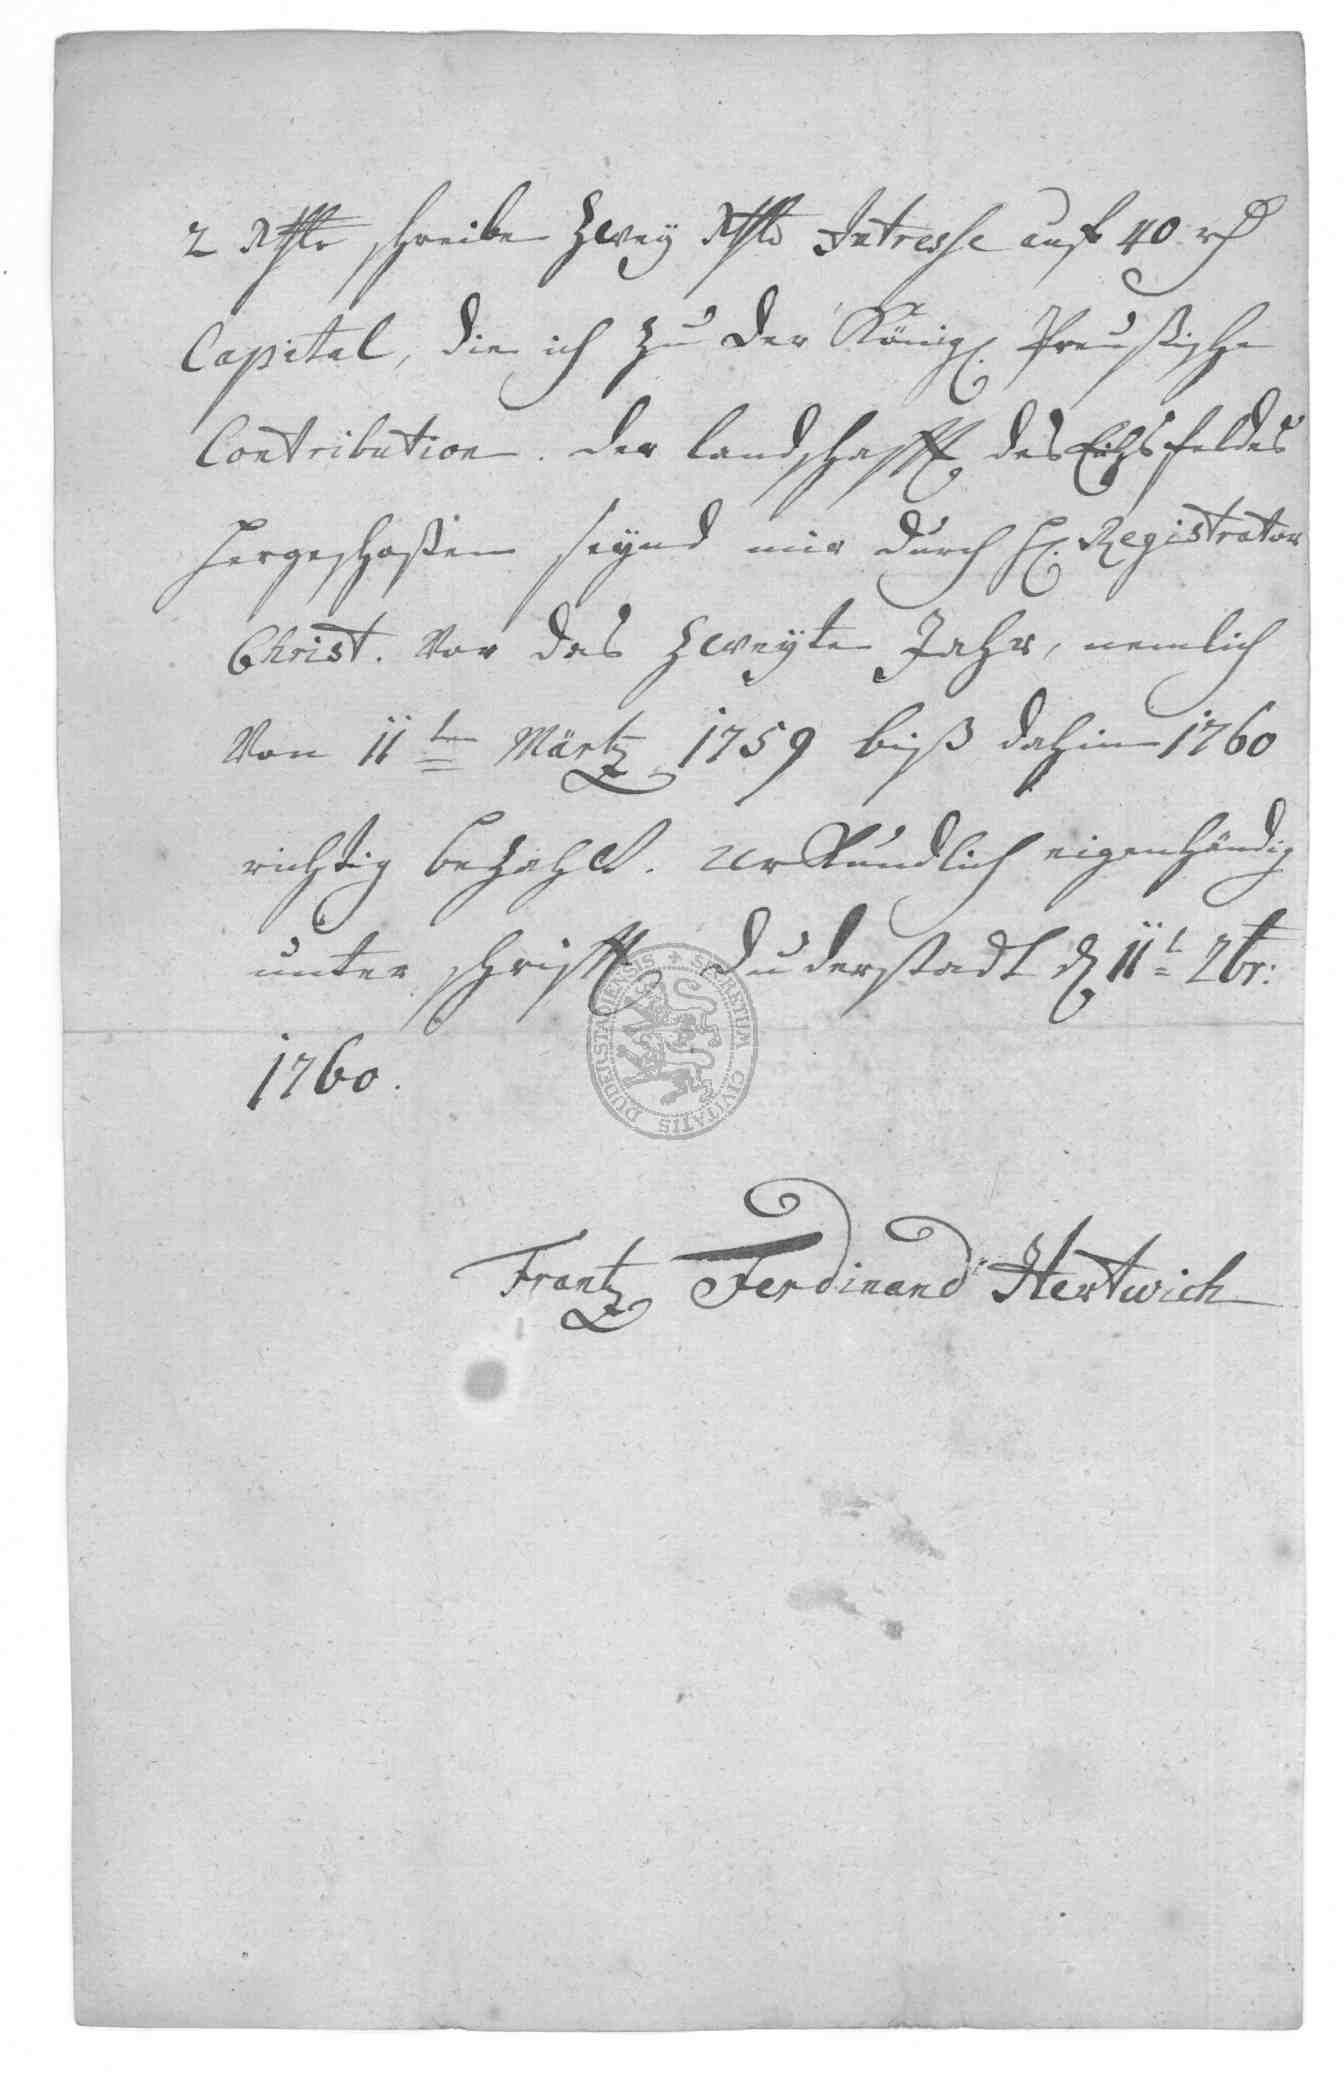 2 Rthlr schreibe zwey Rthlr Intresse auf 40 rth
Capital, die ich zu der Königl. Preußische
Contribution. der landschafft des Eichsfeldes
hergeschoßen seynd mir durch H. Registrator
Christ. Vor das zweyte Jahr, nemlich
Von 11ten Märtz 1759 biß dahin 1760
richtig bezahlt. Urkundlich eigenhändig
unterschrifft Duderstadt d 11t
1760.
SECRETUM CIVITATIS DUDERSTADIENSIS
Frantz Ferdinand Hertwich